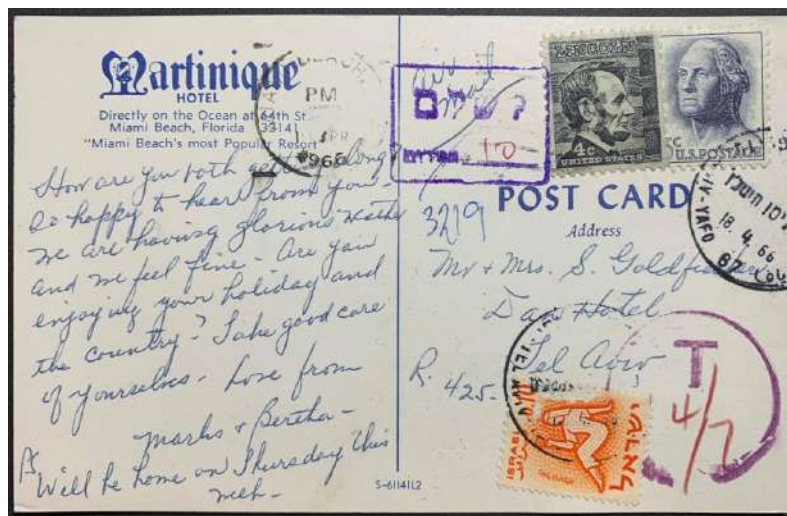 Martinique
HOTEL
Directly on the Ocean at 64th St.
Miami Beach, Florida 33141
"Miami Beach's most Popular Resort"
How are you both getting along?
So happy to hear from you -
we are having glorious weather
and we feel fine - Are you
enjoying your holiday and
the country - ? Take good care
of yourselves - Love from
& Bertha -
Ps.
Will be home on Thursday this
week -
S-61141L2
PM
APR
1966
Air
Mail
דמי
10
LINCOLN
4c
UNITED STATES
5c
U.S. POSTAGE
3219
POST CARD
Address
Mr + Mrs. S.
Dan Hotel
Tel Aviv
R. 425-
YAFO
18. 4. 66
T
4/7
ISRAEL
ישראל